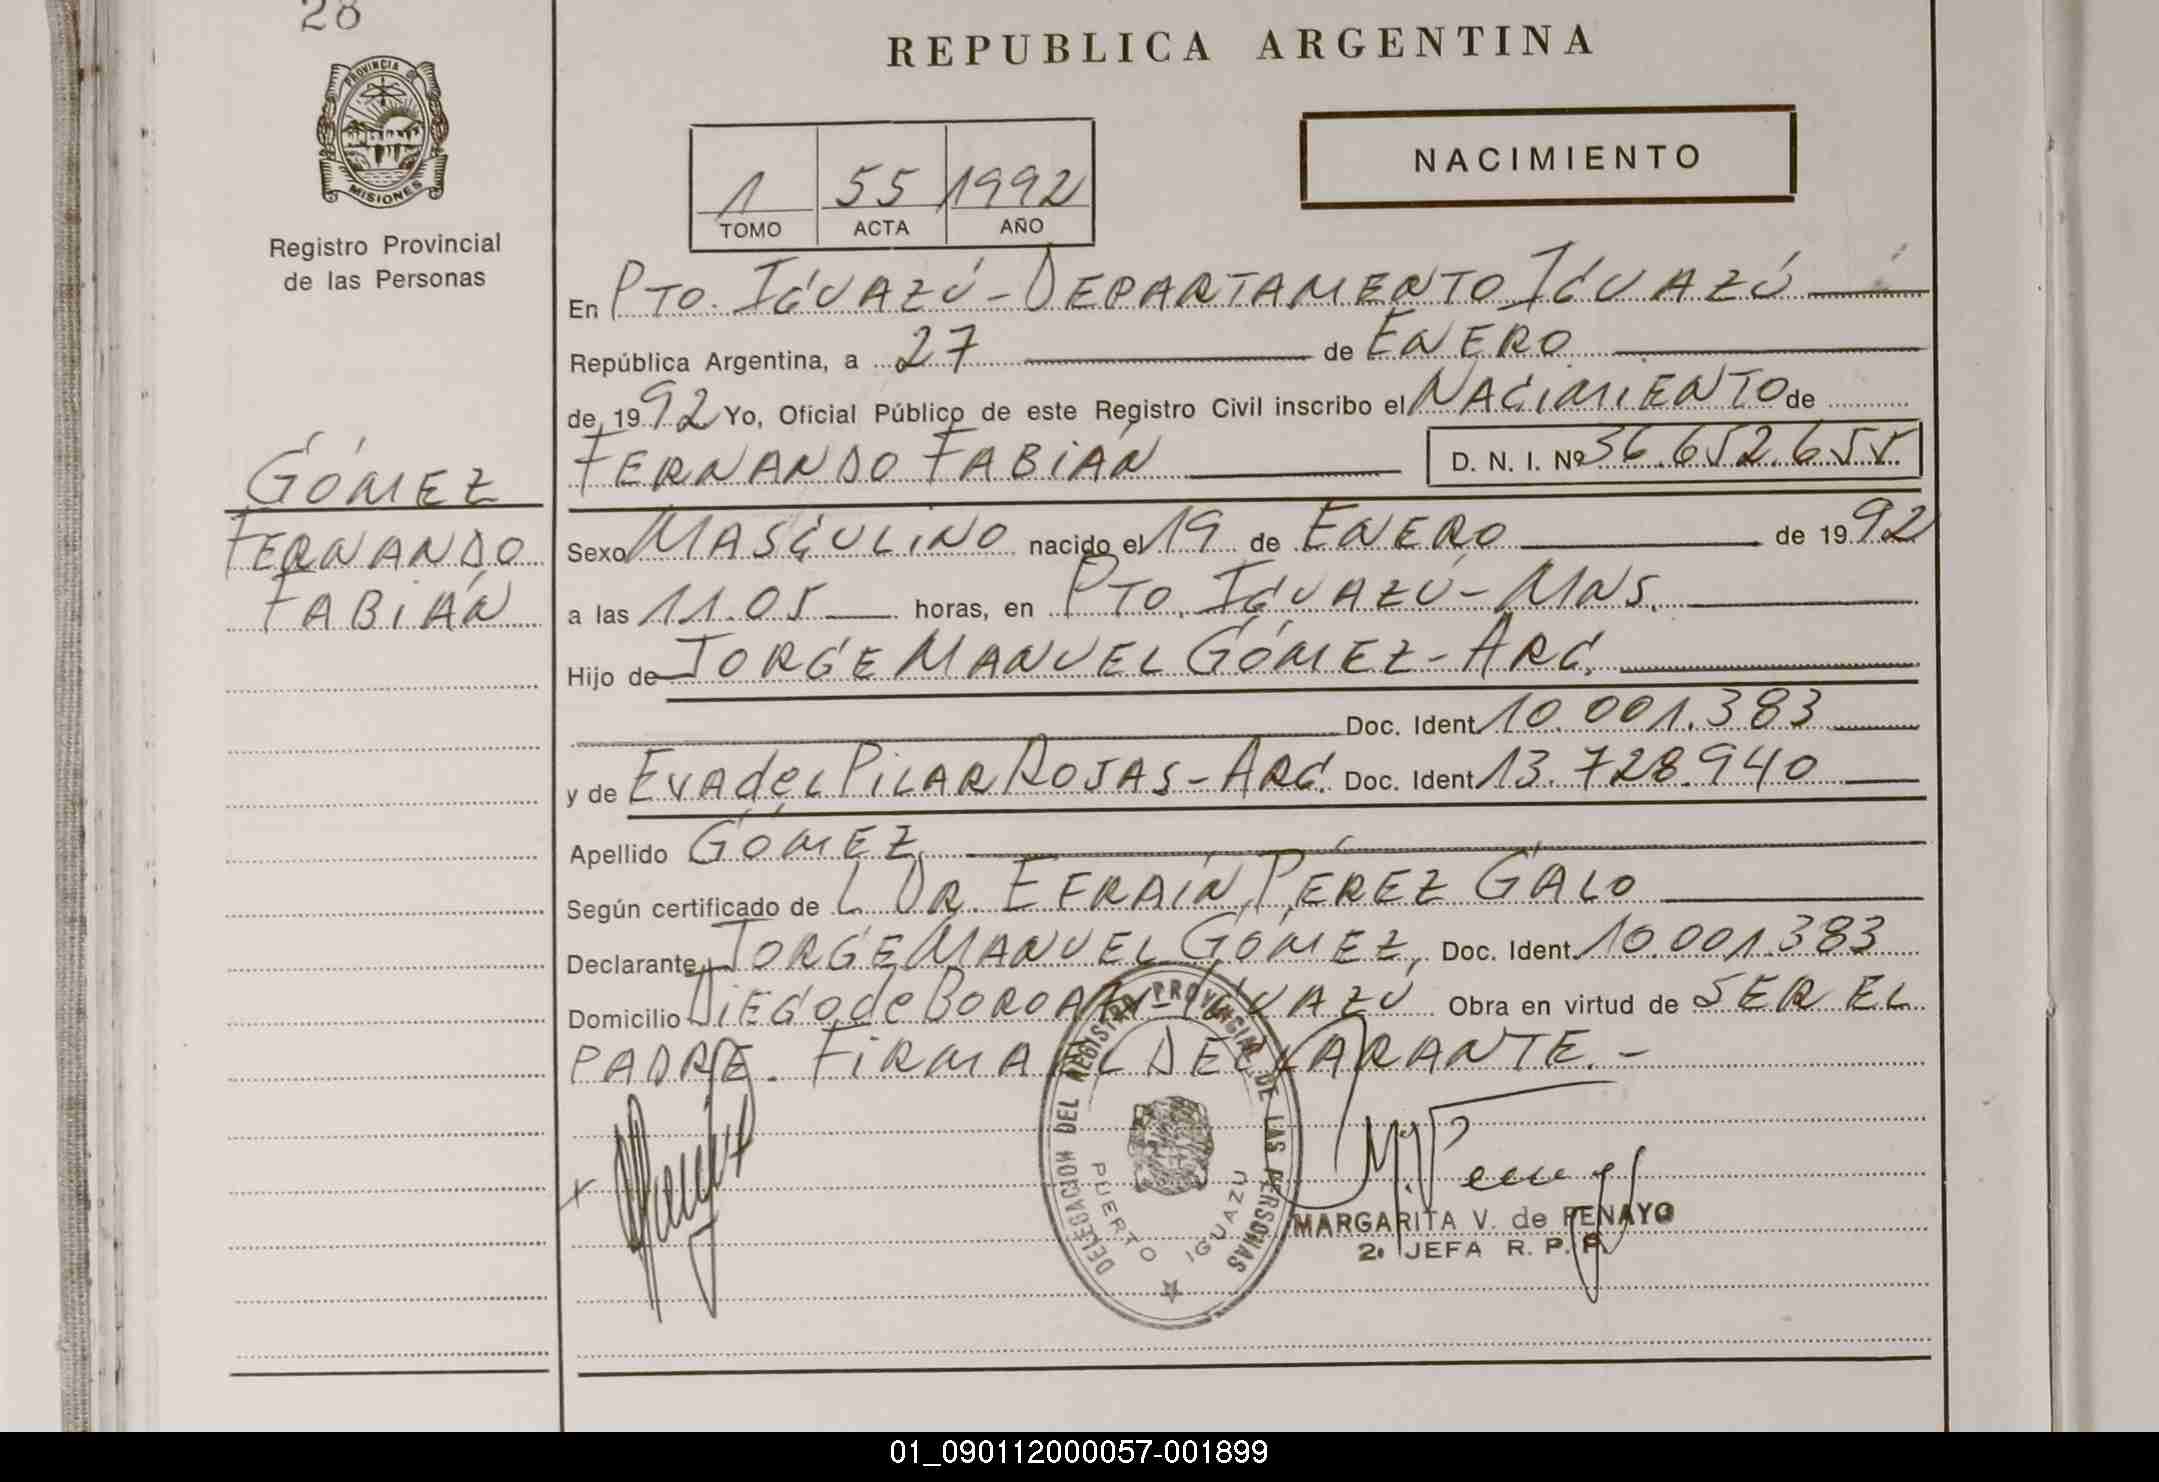 28
REPUBLICA ARGENTINA
PROVINCIA DE
MISIONES
Registro Provincial
de las Personas
NACIMIENTO
1 55 1992
TOMO ACTA AÑO
En PTO. IGUAZÚ - DEPARTAMENTO IGUAZÚ
República Argentina, a 27 de ENERO
de 1992 Yo, Oficial Público de este Registro Civil inscribo el NACIMIENTO de
FERNANDO FABIÁN D. N. I. Nº 36.652.655
GÓMEZ
FERNANDO
FABIÁN
Sexo MASCULINO nacido el 19 de ENERO de 1992
a las 11.05 horas, en PTO. IGUAZÚ - MNS.
Hijo de JORGE MANUEL GÓMEZ - ARG.
Doc. Ident. 10.001.383
y de EVA del PILAR ROJAS - ARG. Doc. Ident. 13.728.940
Apellido GÓMEZ
Según certificado de L DR. EFRAÍN PÉREZ GALO
Declarante JORGE MANUEL GÓMEZ, Doc. Ident. 10.001.383
Domicilio DIEGO de BOROA - IGUAZÚ Obra en virtud de SER EL
PADRE. FIRMA EL DECLARANTE. -
DELEGACION DEL REGISTRO PROVINCIAL DE LAS PERSONAS
PUERTO IGUAZU
MARGARITA V. de PENAYO
2. JEFA R. P. P.
01_090112000057-001899